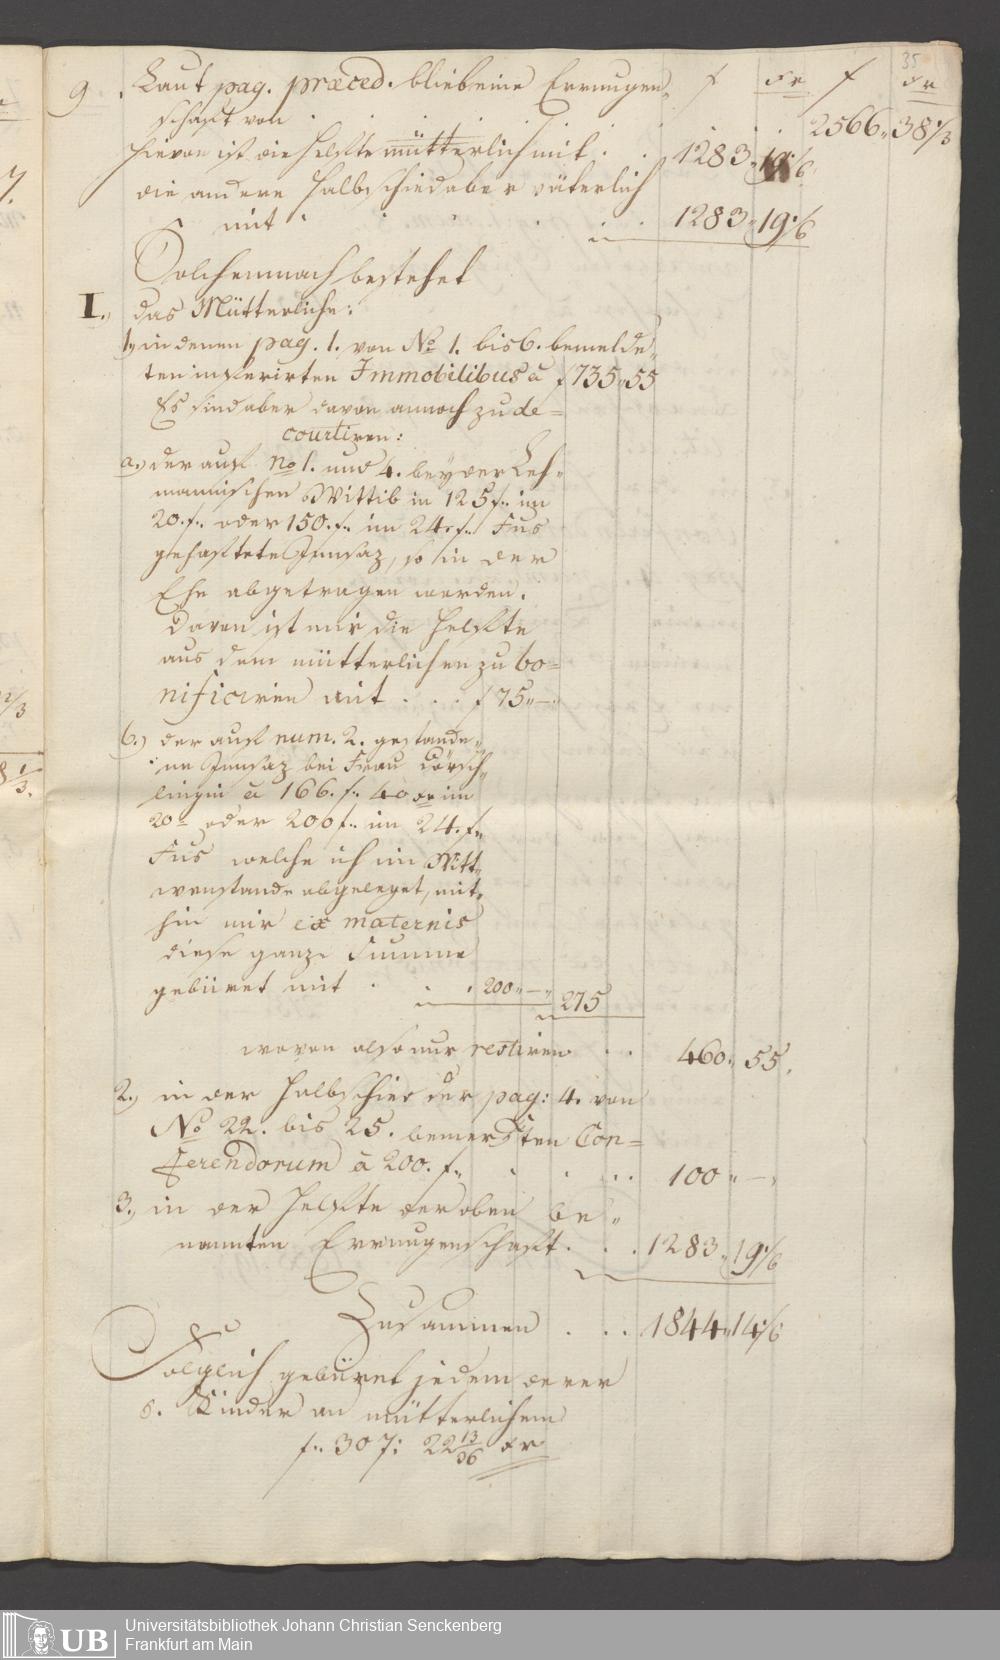 35
9. Laut pag. præced. bliebe eine Errungen„ f xr f xr
schaft von . . . . . 2566„ 38 1/3
Hievon ist die Helfte mütterlich mit . . 1283„ 19 1/6
die andere Halbschied aber väterlich
mit . . . . . 1283„ 19 1/6
Solchemnach bestehet
I., das Mütterliche:
1., in denen pag. 1. von No 1. bis 6. bemelde„
ten inferirten Immobilibus à f 735„ 55
Es sind aber davon annoch zu de=
courtiren:
a., der auf No 1. und 4. bey der Leh„
mannischen Wittib in 125 f„ im
20. f„ oder 150. f„ im 24. f„ Fus
gehaftete Innsaz, so in der
Ehe abgetragen worden.
Davon ist mir die Helfte
aus dem mütterlichen zu bo=
nificiren mit . . . f 75„ —
b.) der auf num. 2. gestande„
ne Innsaz bei Frau Börsch„
lingin à 166. f„ 40 xr im
20= oder 200 f„ im 24. f„
Fus welche ich im Witt„
wenstande abgeleget, mit„
hin mir ex maternis
diese ganze Summe
gebüret mit . . . 200„ —„ 275
wovon also nur restiren . . 460„ 55.
2., in der Halbschied der pag: 4. von
No 22. bis 25. bemerkten Con=
ferendorum à 200. f„ . . . . 100„ —„
3., in der Helfte der oben be„
nannten Errungenschaft . . . 1283„ 19 1/6
Zusammen . . . 1844„ 14 1/6
Folglich gebüret jedem derer
6. Kinder an mütterlichem
f„ 307: 22 13/36 xr
Universitätsbibliothek Johann Christian Senckenberg
Frankfurt am Main
UB